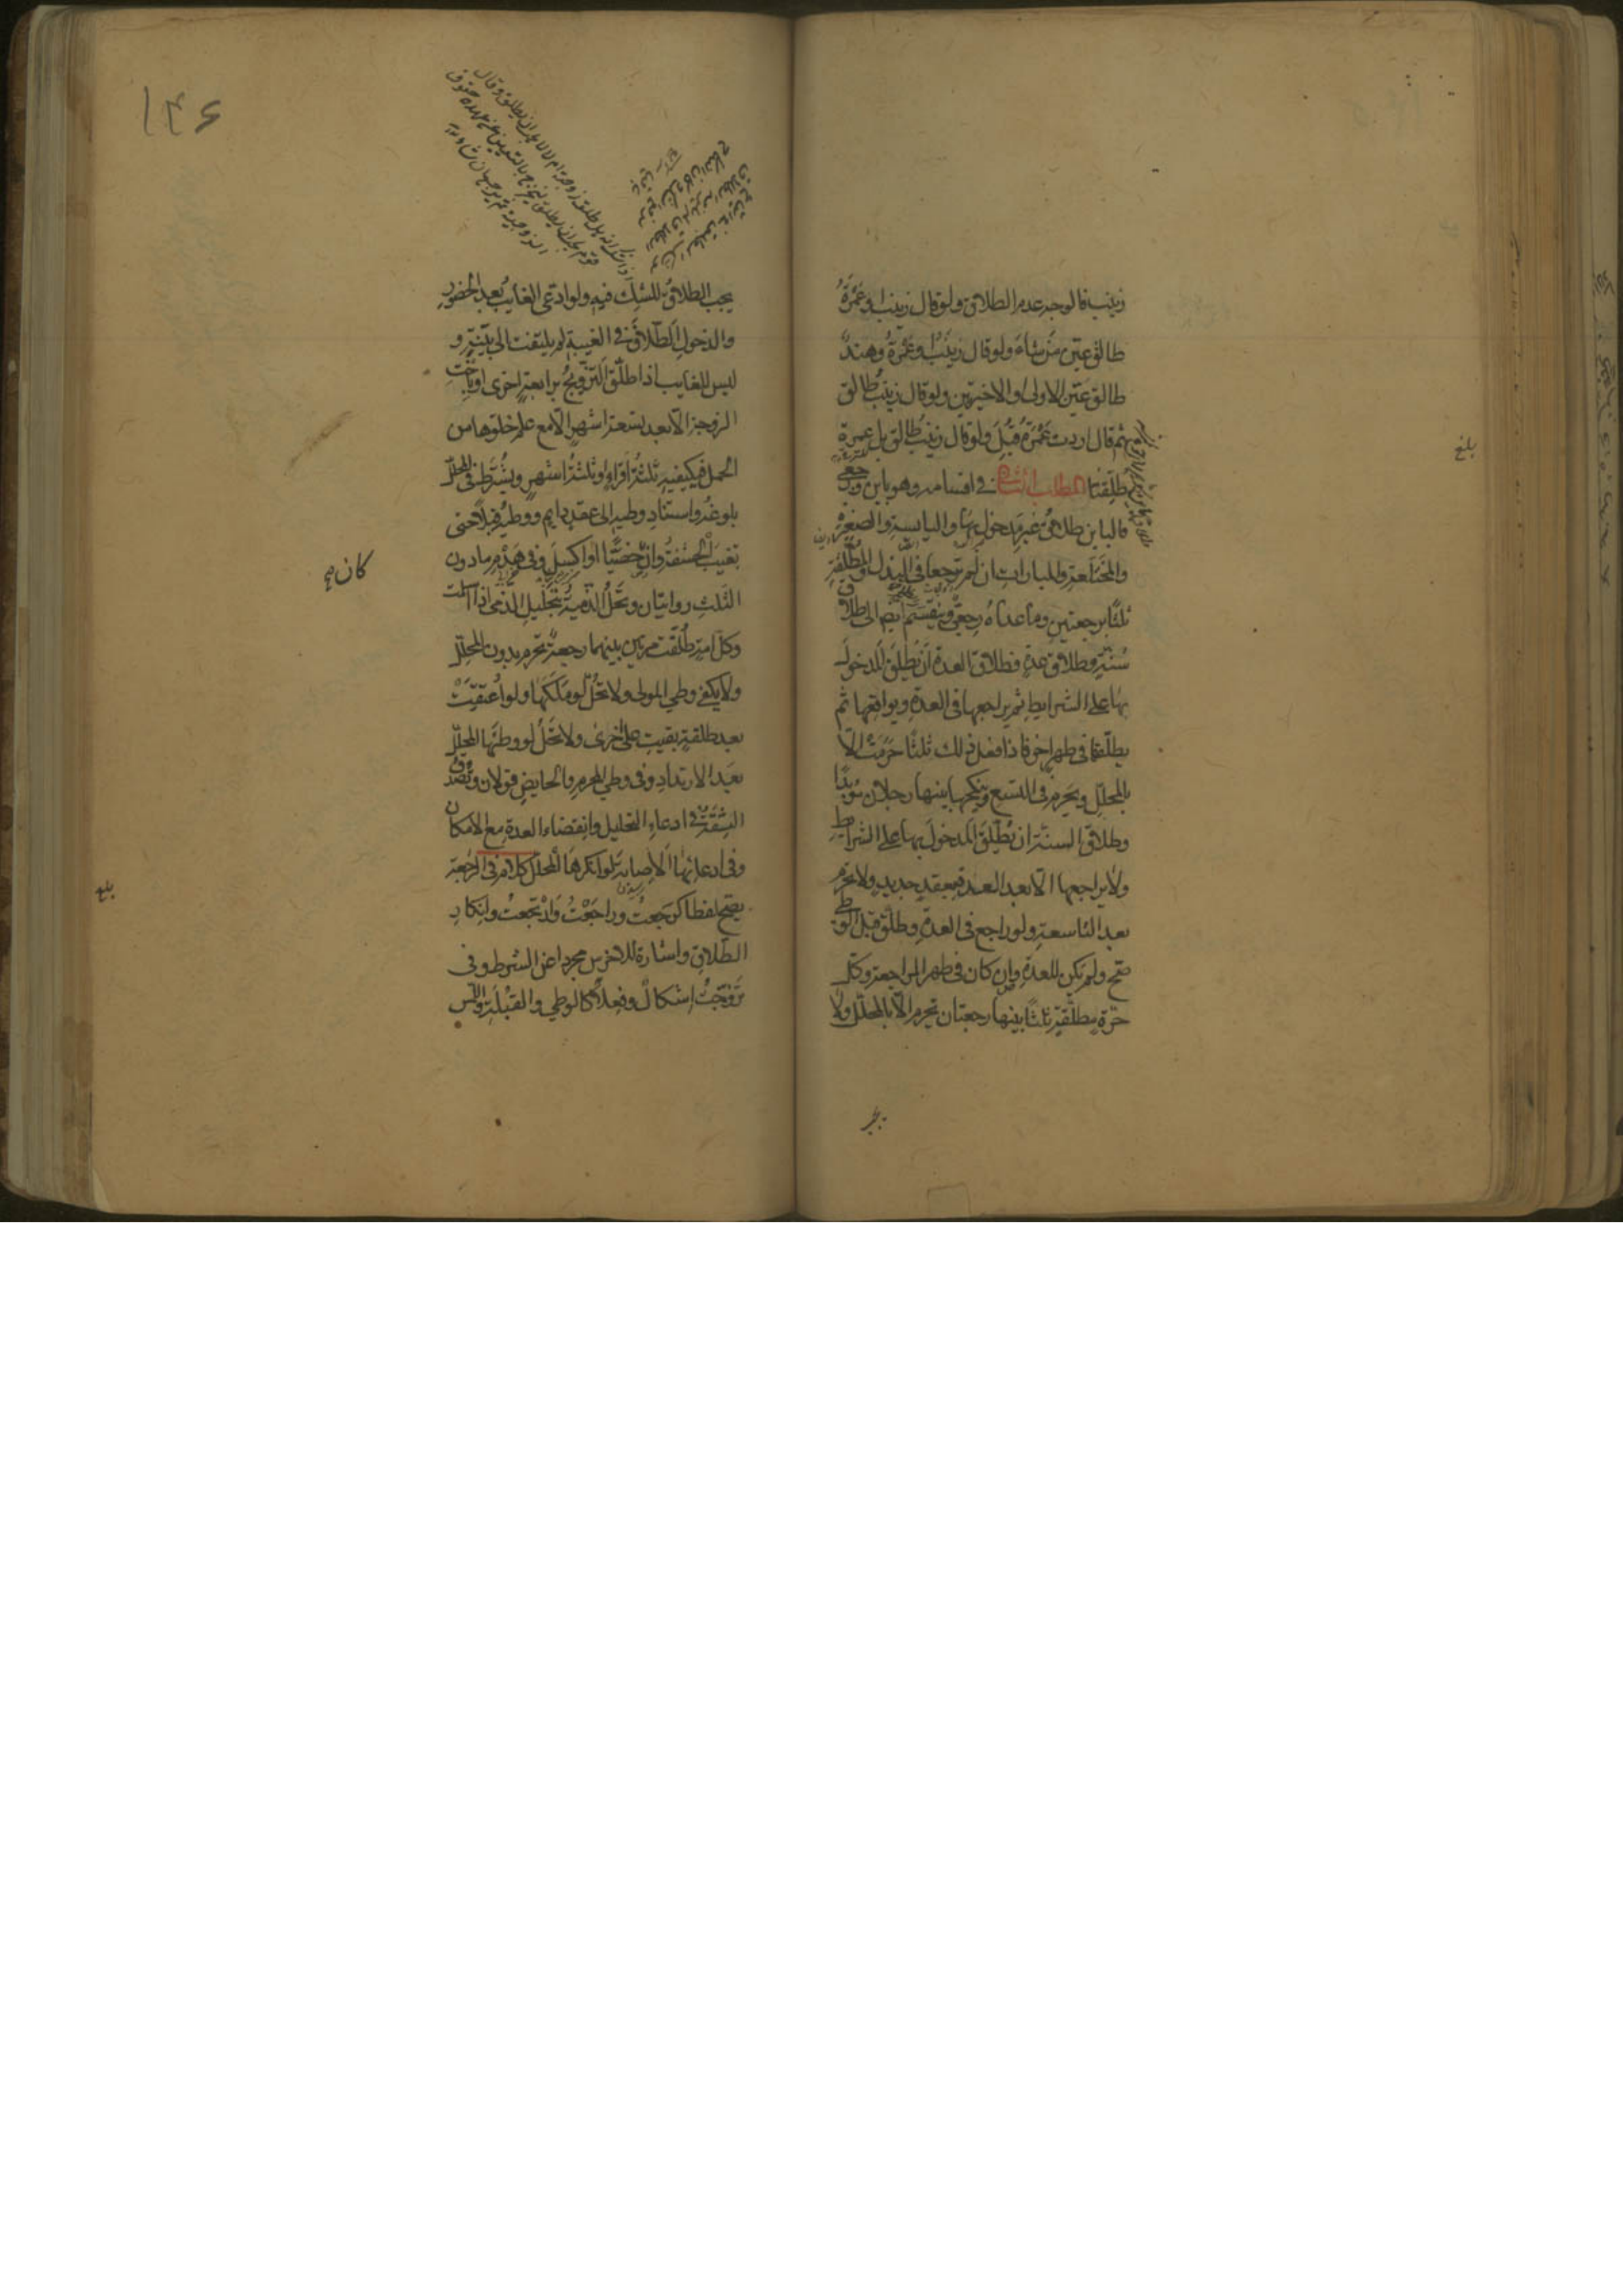 زينب فالوجه عدم الطلاق ولو قال زينب او عَمْرَةُ
طالق عيّن من شاء ولو قال زينبُ او عَمْرَةُ وهندٌ
طالق عيّن الاولى او الاخيرتين ولو قال زينبُ طالق
ثم قال اردت عَمْرَةَ قُبِلَ ولو قال زينبُ طالق بل عمرة
طُلّقتا المطلب الثانى فى اقسامه وهو باين ورجعى
فالباين طلاقُ غير مدخولٍ بها واليايسةِ والصغيرة
والمختلعةِ والمباراتِ ان لم ترجعا فى البذل والمطلّقةِ
ثلثًا برجعتين وما عداه رجعىٌّ وينقسم ايضا الى طلاق
سُنّةٍ وطلاق عدةٍ فطلاق العدة ان يُطلّقَ المدخولَ
بها على الشرايطِ ثم يراجعها فى العدةِ ويواقعها ثم
يطلّقها فى طهرٍ اخر فاذا فعل ذلك ثلثًا حَرُمَتْ الّا
بالمحلِّل ويحرم فى التسع وينكحها بينها رجلان مؤبدًا
وطلاق السنّة ان يُطلّقَ المدخولَ بها على الشرايط
ولا يراجعها الّا بعد العدة بعقدٍ جديدٍ ولا تحرم
بعد التاسعة ولو راجع فى العدةِ وطلّق قبل الوطى
صح ولم يكن للعدة وان كان فى طهر المراجعة وكل
حرّة مطلّقةٍ ثلثًا بينها رجعتان تحرم الّا بالمحلّل ولا
بلغ
يجب
۱۴۶
يجب الطلاقُ للشك فيه ولو ادعى الغايب بعد الحضور
والدخول الطلاقَ فى الغيبة لم يلتفت الى بيّنته و
ليس للغايب اذا طلّق التزويجُ برابعةٍ اخرى او باخت
الزوجة الّا بعد تسعة اشهرٍ الّا مع علم خلوّها من
الحمل فيكفيه ثلثةُ اقراءٍ او ثلثةُ اشهرٍ ويُشترط فى المحلّل
بلوغُه واستناد وطيه الى عقدٍ دايم ووطيُه قبلًا حتى
تغيبَ الحشفةُ وان خصيًّا او اكسل وفى هَدْمِه ما دون
الثلثِ روايتان وتحلُّ الذميةُ بتحليل الذمى اذا اسلمت
وكلّ امةٍ طُلّقت مرتين بينهما رجعةٌ تحرم بدون المحلّل
ولا يكفى وطى المولى ولا تحلُّ لو مَلَكَها ولو اُعتقتْ
بعد طلقةٍ بقيت على اُخرى ولا تحلُّ لو وطئها المحلّل
بعد الارتداد وفى وطى المحرم والحايض قولان وتُصدّق
الثقةُ فى ادعاءِ التحليل وانقضاء العدة مع الامكان
وفى ادعائها الاصابةَ لو انكرها المحلل كلام فى الرجعة
يصح لفظا كرجعتُ وراجَعْتُ وارْتجعتُ وانكارِ
الطلاقِ واشارة للاخرس مجردا عن الشرط وفى
تزوّجتُ اِشكالٌ وفعلًا كالوطى والقُبْلَةِ واللمس
كان صح
بلغ